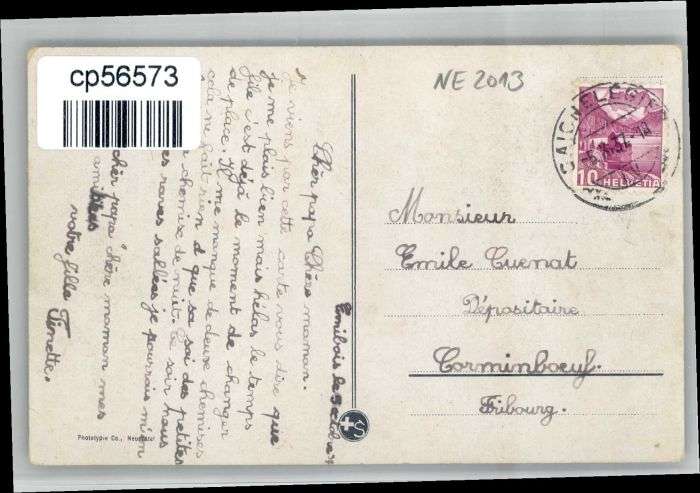 cp56573
NE 2013
SAIGNELÉGIER
10
HELVETIA
Monsieur
Emile Cuenat
Dépositaire
Corminboeuf.
Fribourg.
Emibois le 5
Cher papa Chère maman.
Je viens par cette carte vous dire que
je me plais bien mais hélas le temps
file c'est déjà le moment de changer
de place. Il me manque de deux chemises
cela ne fait rien d que sa soi des petites
chemise de nuit. Ce soir nous
raves sallées je pourrais m'en
cher papa chère maman mes
votre fille
Finette.
Phototypie Co., Neuchâtel